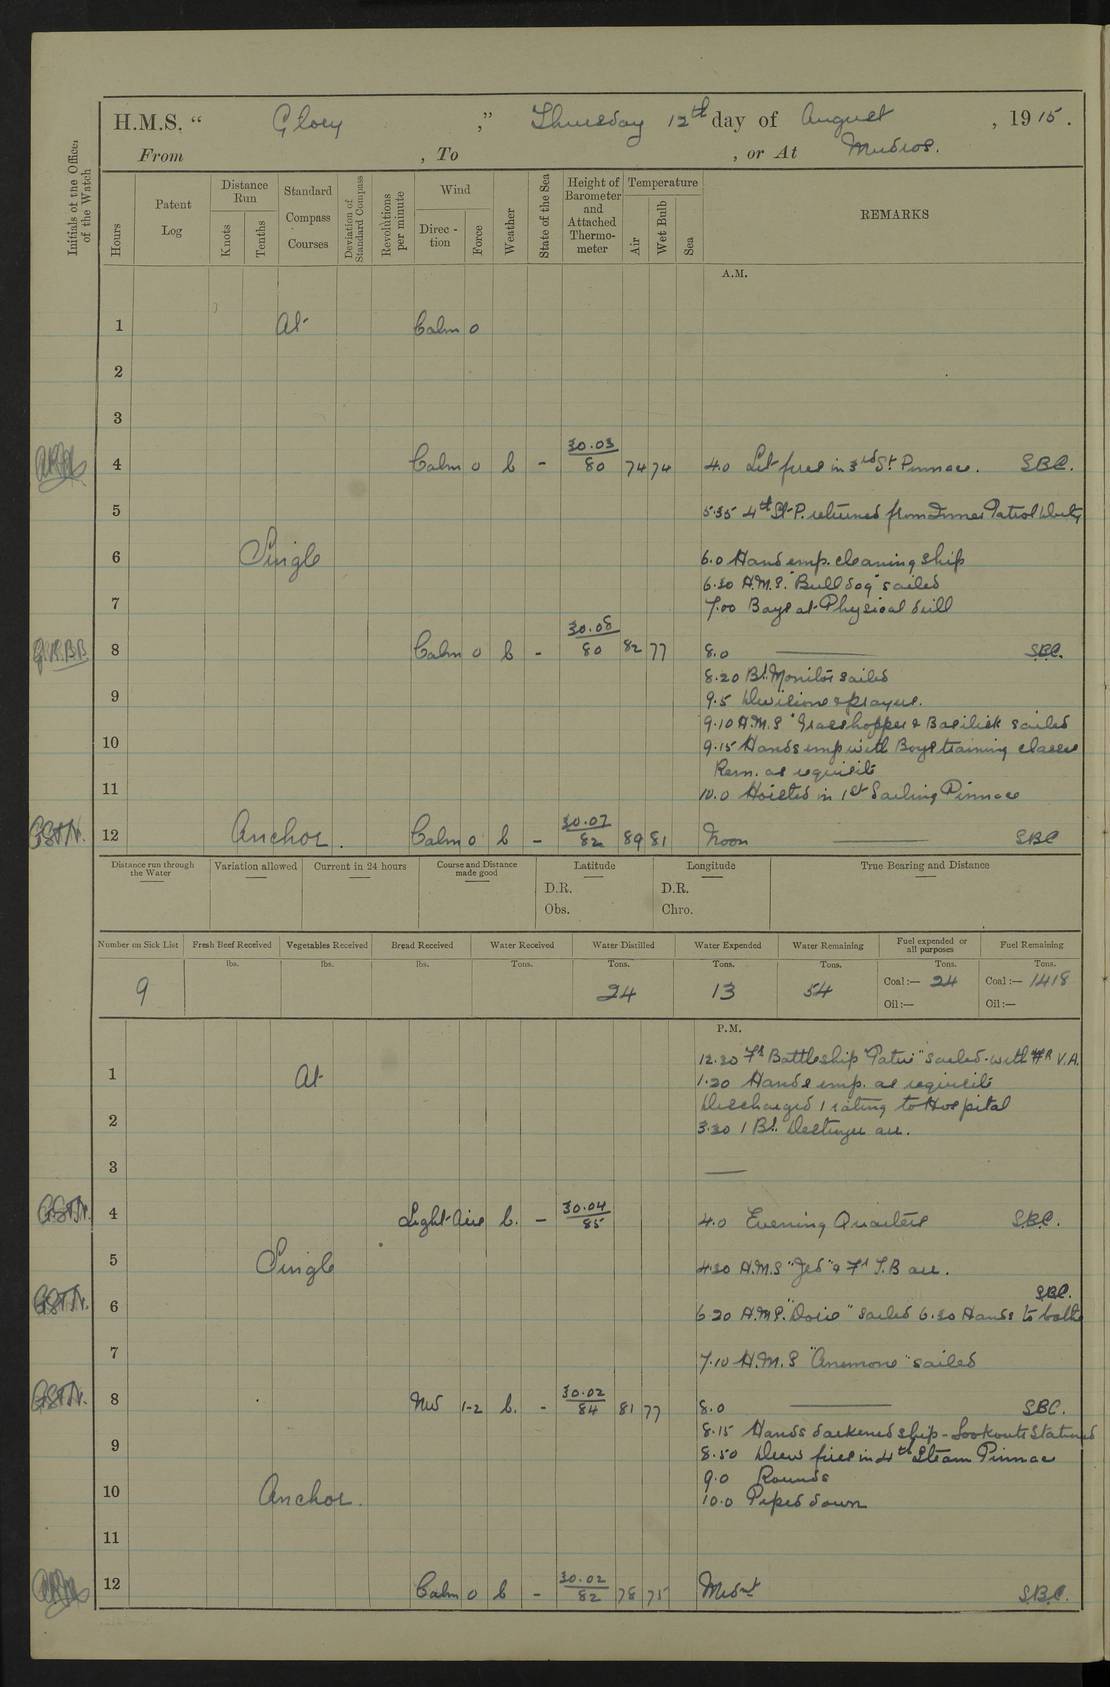 H.M.S. “ Glory ,” Thursday 12th day of August , 1915.
From , To , or At Mudros.
Initials of the Officer of the Watch
Hours
Patent Log
Distance Run
Knots
Tenths
Standard Compass Courses
Deviation of Standard Compass
Revolutions per minute
Wind
Direc-tion
Force
Weather
State of the Sea
Height of Barometer and Attached Thermo-meter
Temperature
Air
Wet Bulb
Sea
REMARKS
A.M.
1 At Calm 0
2
3
4 Calm 0 b - 30.03/80 74 74 4.0 Lit fires in 3rd St Pinnace. S.B.C.
5 5.35 4th St P. returned from Inner Patrol Duty
6 Single 6.0 Hands emp. cleaning ship
6.30 H.M.S. "Bulldog" sailed
7 7.00 Boys at Physical drill
8 Calm 0 b - 30.08/80 82 77 8.0 S.B.C.
8.20 Br. Monitor sailed
9 9.5 Divisions & prayers.
9.10 H.M.S "Grasshopper & Basilisk sailed
10 9.15 Hands emp with Boys training classes
Rem. as requisite
11 10.0 Hoisted in 1st Sailing Pinnace
12 Anchor. Calm 0 b - 30.07/82 89 81 Noon SBC
Distance run through the Water
Variation allowed
Current in 24 hours
Course and Distance made good
Latitude
D.R.
Obs.
Longitude
D.R.
Chro.
True Bearing and Distance
Number on Sick List Fresh Beef Received Vegetables Received Bread Received Water Received Water Distilled Water Expended Water Remaining Fuel expended or all purposes Fuel Remaining
lbs. lbs. lbs. Tons. Tons. Tons. Tons. Tons. Tons.
9 24 13 54 Coal:— 24 Coal:— 1418
Oil:— Oil:—
P.M.
12.20 Fr Battleship "Patrie" sailed with Fr V.A.
1 At 1.20 Hands emp. as requisite
Discharged 1 rating to Hospital
2 3.30 1 Br. Destroyer arr.
3
4 Light Airs b. - 30.04/85 4.0 Evening Quarters S.B.C.
5 Single 4.30 H.M.S "Jed" & Fr T.B arr.
S.B.C.
6 6 20 H.M.S. "Doris" sailed 6.30 Hands to bathe
7 7.10 H.M.S "Anemone" sailed
8 NW 1-2 b. - 30.02/84 81 77 8.0 SBC.
8.15 Hands darkened ship - Lookouts Stationed
9 8.50 Drew fires in 4th Steam Pinnace
9.0 Rounds
10 Anchor. 10.0 Piped down
11
12 Calm 0 b - 30.02/82 78 75 Midnt S.B.C.